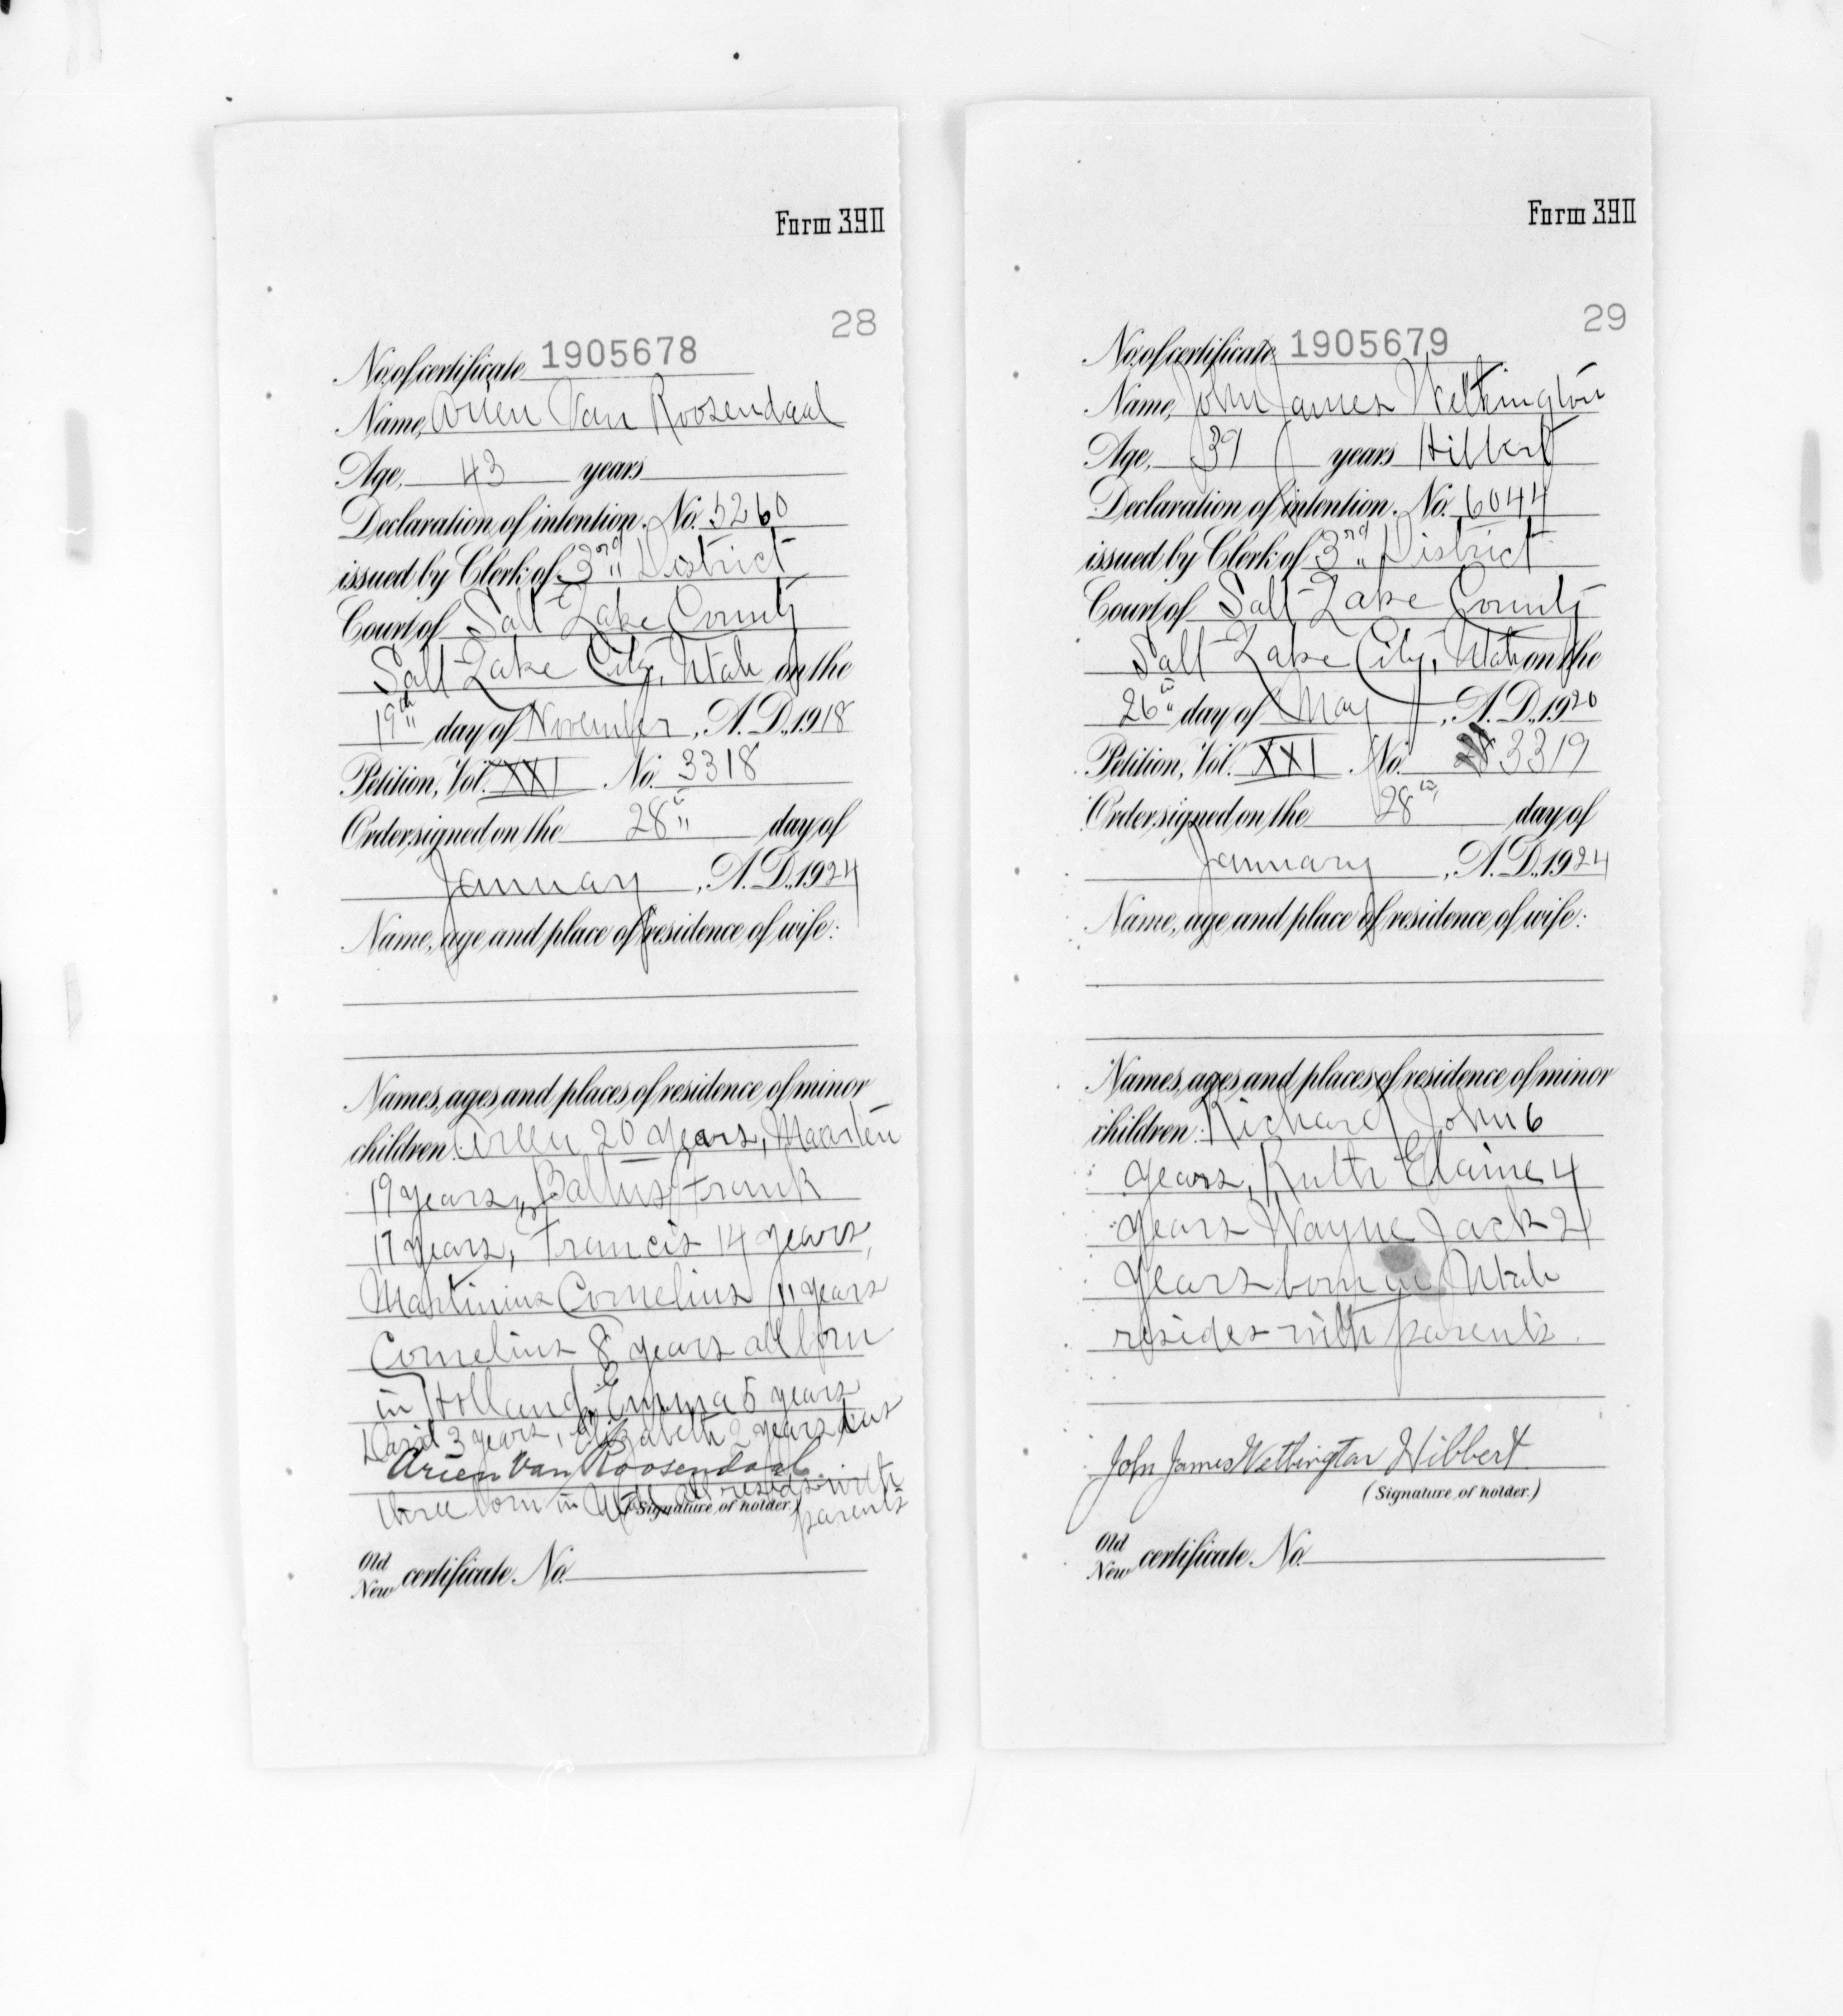 Form 390
28
No. of certificate 1905678
Name, Arien Van Roosendaal
Age, 43 years
Declaration of intention, No. 5260
issued by Clerk of 3rd District
Court of Salt Lake County
Salt Lake City, Utah on the
19th day of November, A.D., 1918
Petition, Vol. XXI No. 3318
Order signed on the 28" day of
January, A.D., 1924
Name, age and place of residence of wife:
Names, ages and places of residence of minor
children: Arien 20 years, Maarten
19 years, Frank
17 years, Francis 14 years,
Martinius Cornelius 11 years
Cornelius 8 years all born
in Holland, Emma 5 years
David 3 years, Elizabeth 2 years
Arien Van Roosendaal
three born in Utah all reside with
parents
(Signature of holder.)
Old
New certificate No.
Form 390
29
No. of certificate 1905679
Name, John James Wethington
Age, 39 years Hibbert
Declaration of intention, No. 6044
issued by Clerk of 3rd District
Court of Salt Lake County
Salt Lake City, Utah on the
26" day of May, A.D., 1920
Petition, Vol. XXI No. 3319
Order signed on the 28" day of
January, A.D., 1924
Name, age and place of residence of wife:
Names, ages and places of residence of minor
children: Richard John 6
years, Ruth Elaine 4
years Wayne Jack 2
years born in Utah
resides with parents.
John James Wethington Hibbert
(Signature of holder.)
Old
New certificate No.